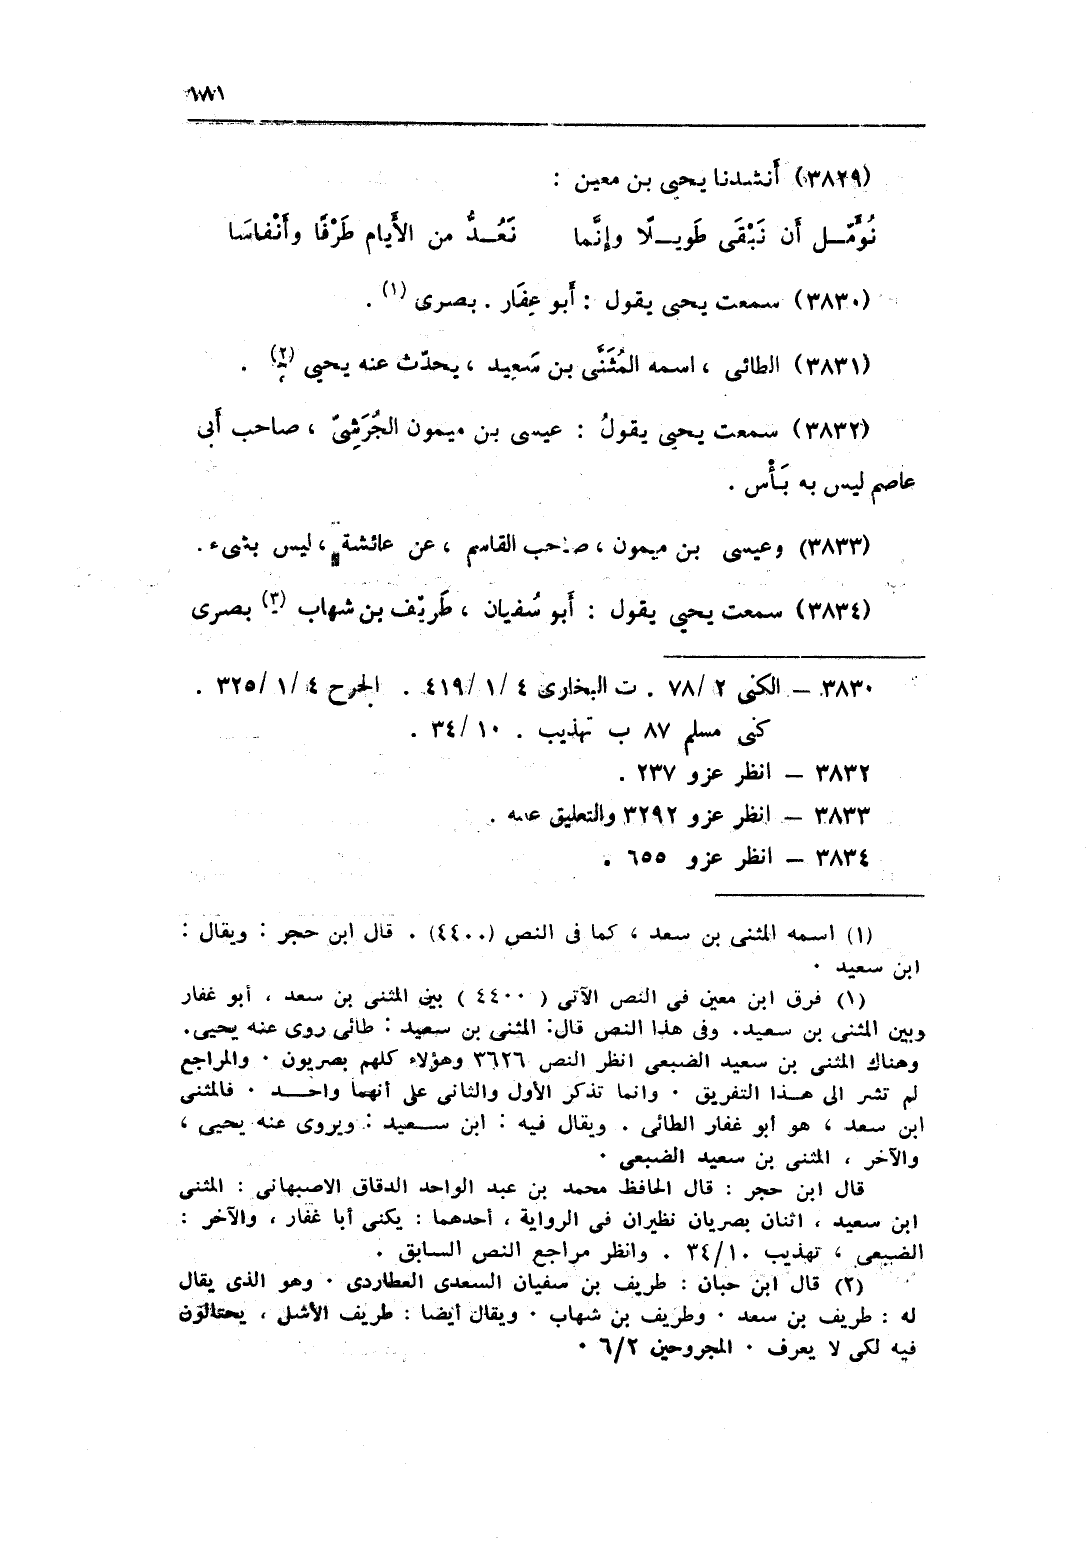 ١٨١
(٣٨٢٩) أَنشدنا يحيى بن معين :
نُؤَمّــل أَن نَبْقَى طَويــلًا وإنَّما نَعُــدُّ من الأَيام طَرْفًا وأَنْفاسَا
(٣٨٣٠) سمعت يحيى يقول : أَبو عِفَار . بصرى (١) .
(٣٨٣١) الطائى ، اسمه المُثَنَّى بن سَعِيد ، يحدّث عنه يحيى (٢) .
(٣٨٣٢) سمعت يحيى يقولُ : عيسى بن ميمون الجُرَشِىّ ، صاحب أَبى
عاصم ليس به بَأْس .
(٣٨٣٣) وعيسى بن ميمون ، صاحب القاسم ، عن عائشة ، ليس بشىء .
(٣٨٣٤) سمعت يحيى يقول : أَبو سُفيان ، طَرِيْف بن شهاب (٣) بصرى
٣٨٣٠ – الكنى ٢ /٧٨ . ت البخارى ٤ /١ /٤١٩ . الجرح ٤ /١ /٣٢٥ .
كنى مسلم ٨٧ ب تهذيب . ١٠ /٣٤ .
٣٨٣٢ – انظر عزو ٢٣٧ .
٣٨٣٣ – انظر عزو ٣٢٩٢ والتعليق عليه .
٣٨٣٤ – انظر عزو ٦٥٥ .
(١) اسمه المثنى بن سعد ، كما فى النص (٤٤٠٠) . قال ابن حجر : ويقال :
ابن سعيد .
(١) فرق ابن معين فى النص الآتى ( ٤٤٠٠ ) بين المثنى بن سعد ، أبو غفار
وبين المثنى بن سعيد. وفى هذا النص قال: المثنى بن سعيد : طائى روى عنه يحيى.
وهناك المثنى بن سعيد الضبعى انظر النص ٣٦٢٦ وهؤلاء كلهم بصريون . والمراجع
لم تشر الى هــذا التفريق . وانما تذكر الأول والثانى على أنهما واحــد . فالمثنى
ابن سعد ، هو أبو غفار الطائى . ويقال فيه : ابن ســعيد : ويروى عنه يحيى ،
والآخر ، المثنى بن سعيد الضبعى .
قال ابن حجر : قال الحافظ محمد بن عبد الواحد الدقاق الاصبهانى : المثنى
ابن سعيد ، اثنان بصريان نظيران فى الرواية ، أحدهما : يكنى أبا غفار ، والآخر :
الضبعى ، تهذيب ٣٤/١٠ . وانظر مراجع النص السابق .
(٢) قال ابن حبان : طريف بن سفيان السعدى العطاردى . وهو الذى يقال
له : طريف بن سعد . وطريف بن شهاب . ويقال أيضا : طريف الأشل ، يحتالون
فيه لكى لا يعرف . المجروحين ٦/٢ .